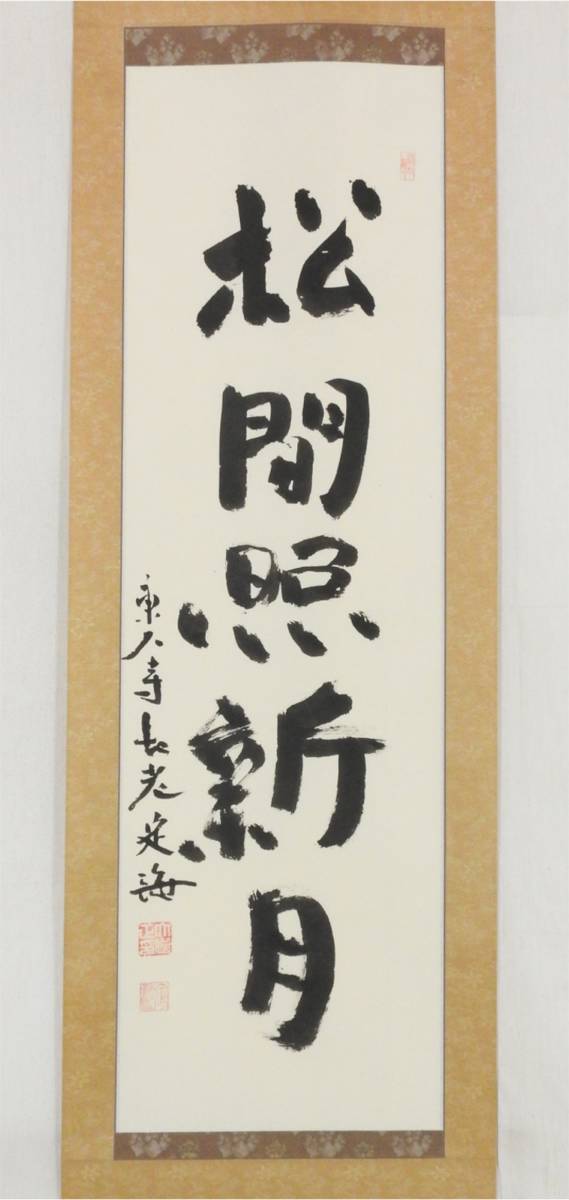 松間照新月
東大寺長老定海